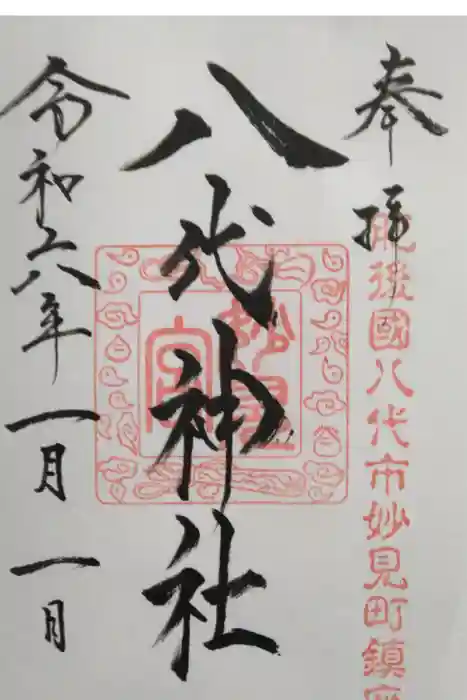 奉拝
肥後國八代市妙見町鎮座
八代神社
妙見宮
令和六年一月一日